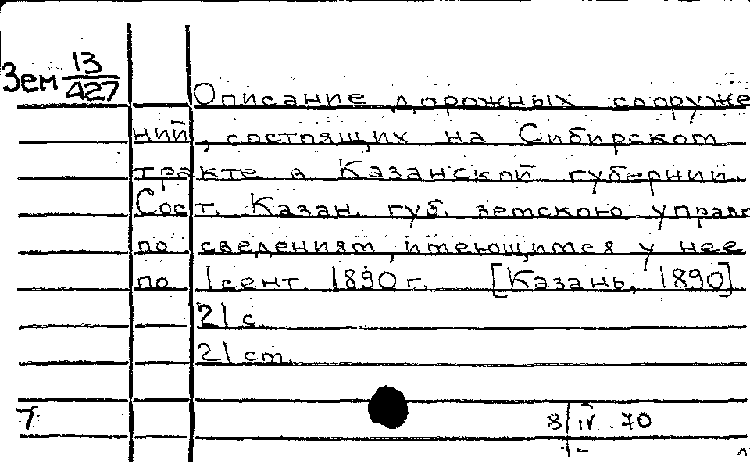 Зем 13/427
Описание дорожных сооруже
ний, состоящих на Сибирском
тракте в Казанской губернии.
Сост. Казан. губ. земскою управ
по сведениям, имеющимся у нее
по 1 сент. 1890 г. [Казань, 1890]
21 с.
21 см.
7 8/IV 70